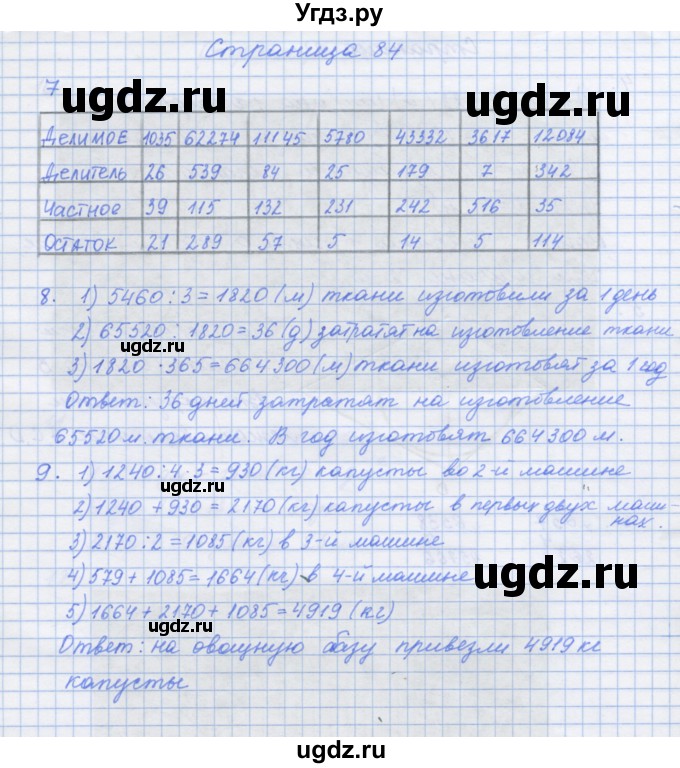 Угдз.ру
Страница 84
7
ugdz.ru ugdz.ru
Делимое 1035 62274 11145 5780 43332 3617 12084
Делитель 26 539 84 25 179 7 342
Частное 39 115 132 231 242 516 35
Остаток 21 289 57 5 14 5 114
8. 1) 5460 : 3 = 1820 (м) ткани изготовили за 1 день
2) 65520 : 1820 = 36 (д) затратят на изготовление ткани
ugdz.ru
3) 1820 · 365 = 664300 (м) ткани изготовят за 1 год
Ответ: 36 дней затратят на изготовление
65520 м. ткани. В год изготовят 664300 м.
9. 1) 1240 : 4 · 3 = 930 (кг) капусты во 2-й машине
ugdz.ru
2) 1240 + 930 = 2170 (кг) капусты в первых двух маши-
нах.
3) 2170 : 2 = 1085 (кг) в 3-й машине
4) 579 + 1085 = 1664 (кг) в 4-й машине
ugdz.ru
5) 1664 + 2170 + 1085 = 4919 (кг)
ugdz.ru
Ответ: на овощную базу привезли 4919 кг
капусты
ugdz.ru